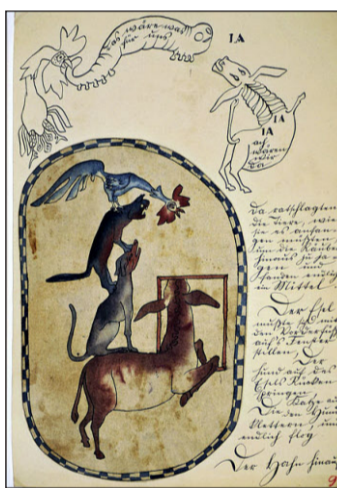 das wäre was
für uns
IA
IA
IA
ach
wären
wir
da
Da ratschlagten
die Tiere, wie
sie es anfan-
gen müßten,
um die Räuber
hinaus zu ja-
gen und
fanden endlich
ein Mittel
Der Esel
mußte sich mit
den Vorderfüßen
auf's Fenster
stellen, Der
Hund auf des
Esels Rücken
springen
Die Katze auf
den Hund
klettern, und
endlich flog
Der Hahn hinauf
9